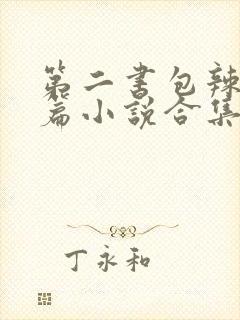 第二书包辣
篇小说合集
丁永和